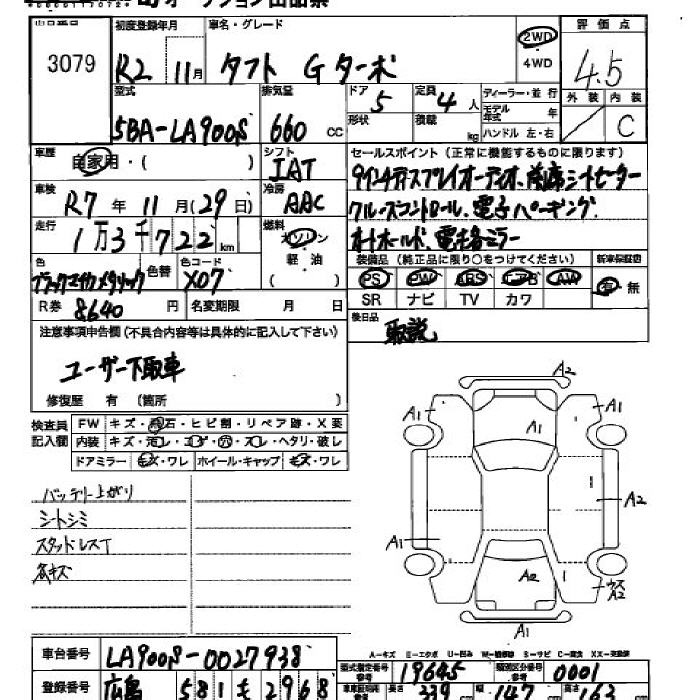 オークション出品票
出品番号 初度登録年月 車名・グレード 2WD 4WD 評価点
3079 R2 11月 タフト Gターボ 4.5
型式 排気量 ドア 定員 ディーラー・並行 外装 内装
5BA-LA900S 660 CC 5 4人 モデル年式 年 C
形状 積載 kg ハンドル 左・右
車歴 自家用・( ) シフト IAT セールスポイント(正常に機能するものに限ります)
車検 R7年 11月(29日) 冷房 AAC 9インチディスプレイオーディオ、前席シートヒーター
走行 1万3千722km 燃料 ガソリン クルーズコントロール、電子パーキング
軽油 ( ) オートホールド、電格ミラー
色 色替 色コード X07 装備品(純正品に限り○をつけてください) 新車保証書
PS PW ABS エアB AW 有 無
R券 8640円 名変期限 月 日 SR ナビ TV カワ
注意事項申告欄(不具合内容等は具体的に記入して下さい) 後日品 取説
ユーザー下取車
修復歴 有 (箇所 )
検査員記入欄 FW キズ・飛石・ヒビ割・リペア跡・X要
内装 キズ・汚レ・コゲ・穴・スレ・ヘタリ・破レ
ドアミラー キズ・ワレ ホイール・キャップ キズ・ワレ
バッテリー上がり
シートシミ
スタッドレスT
各キズ
A2
A1 A1
A1
A2
A1
A2 ウスA2
A1
A-キズ E-エクボ U-凹み W-補修跡 S-サビ C-腐食 XX-交換済
車台番号 LA900S-0027938 型式指定番号 参考 19645 類別区分番号 参考 0001
登録番号 広島 581 も 2968 長さ 339 幅 147 163